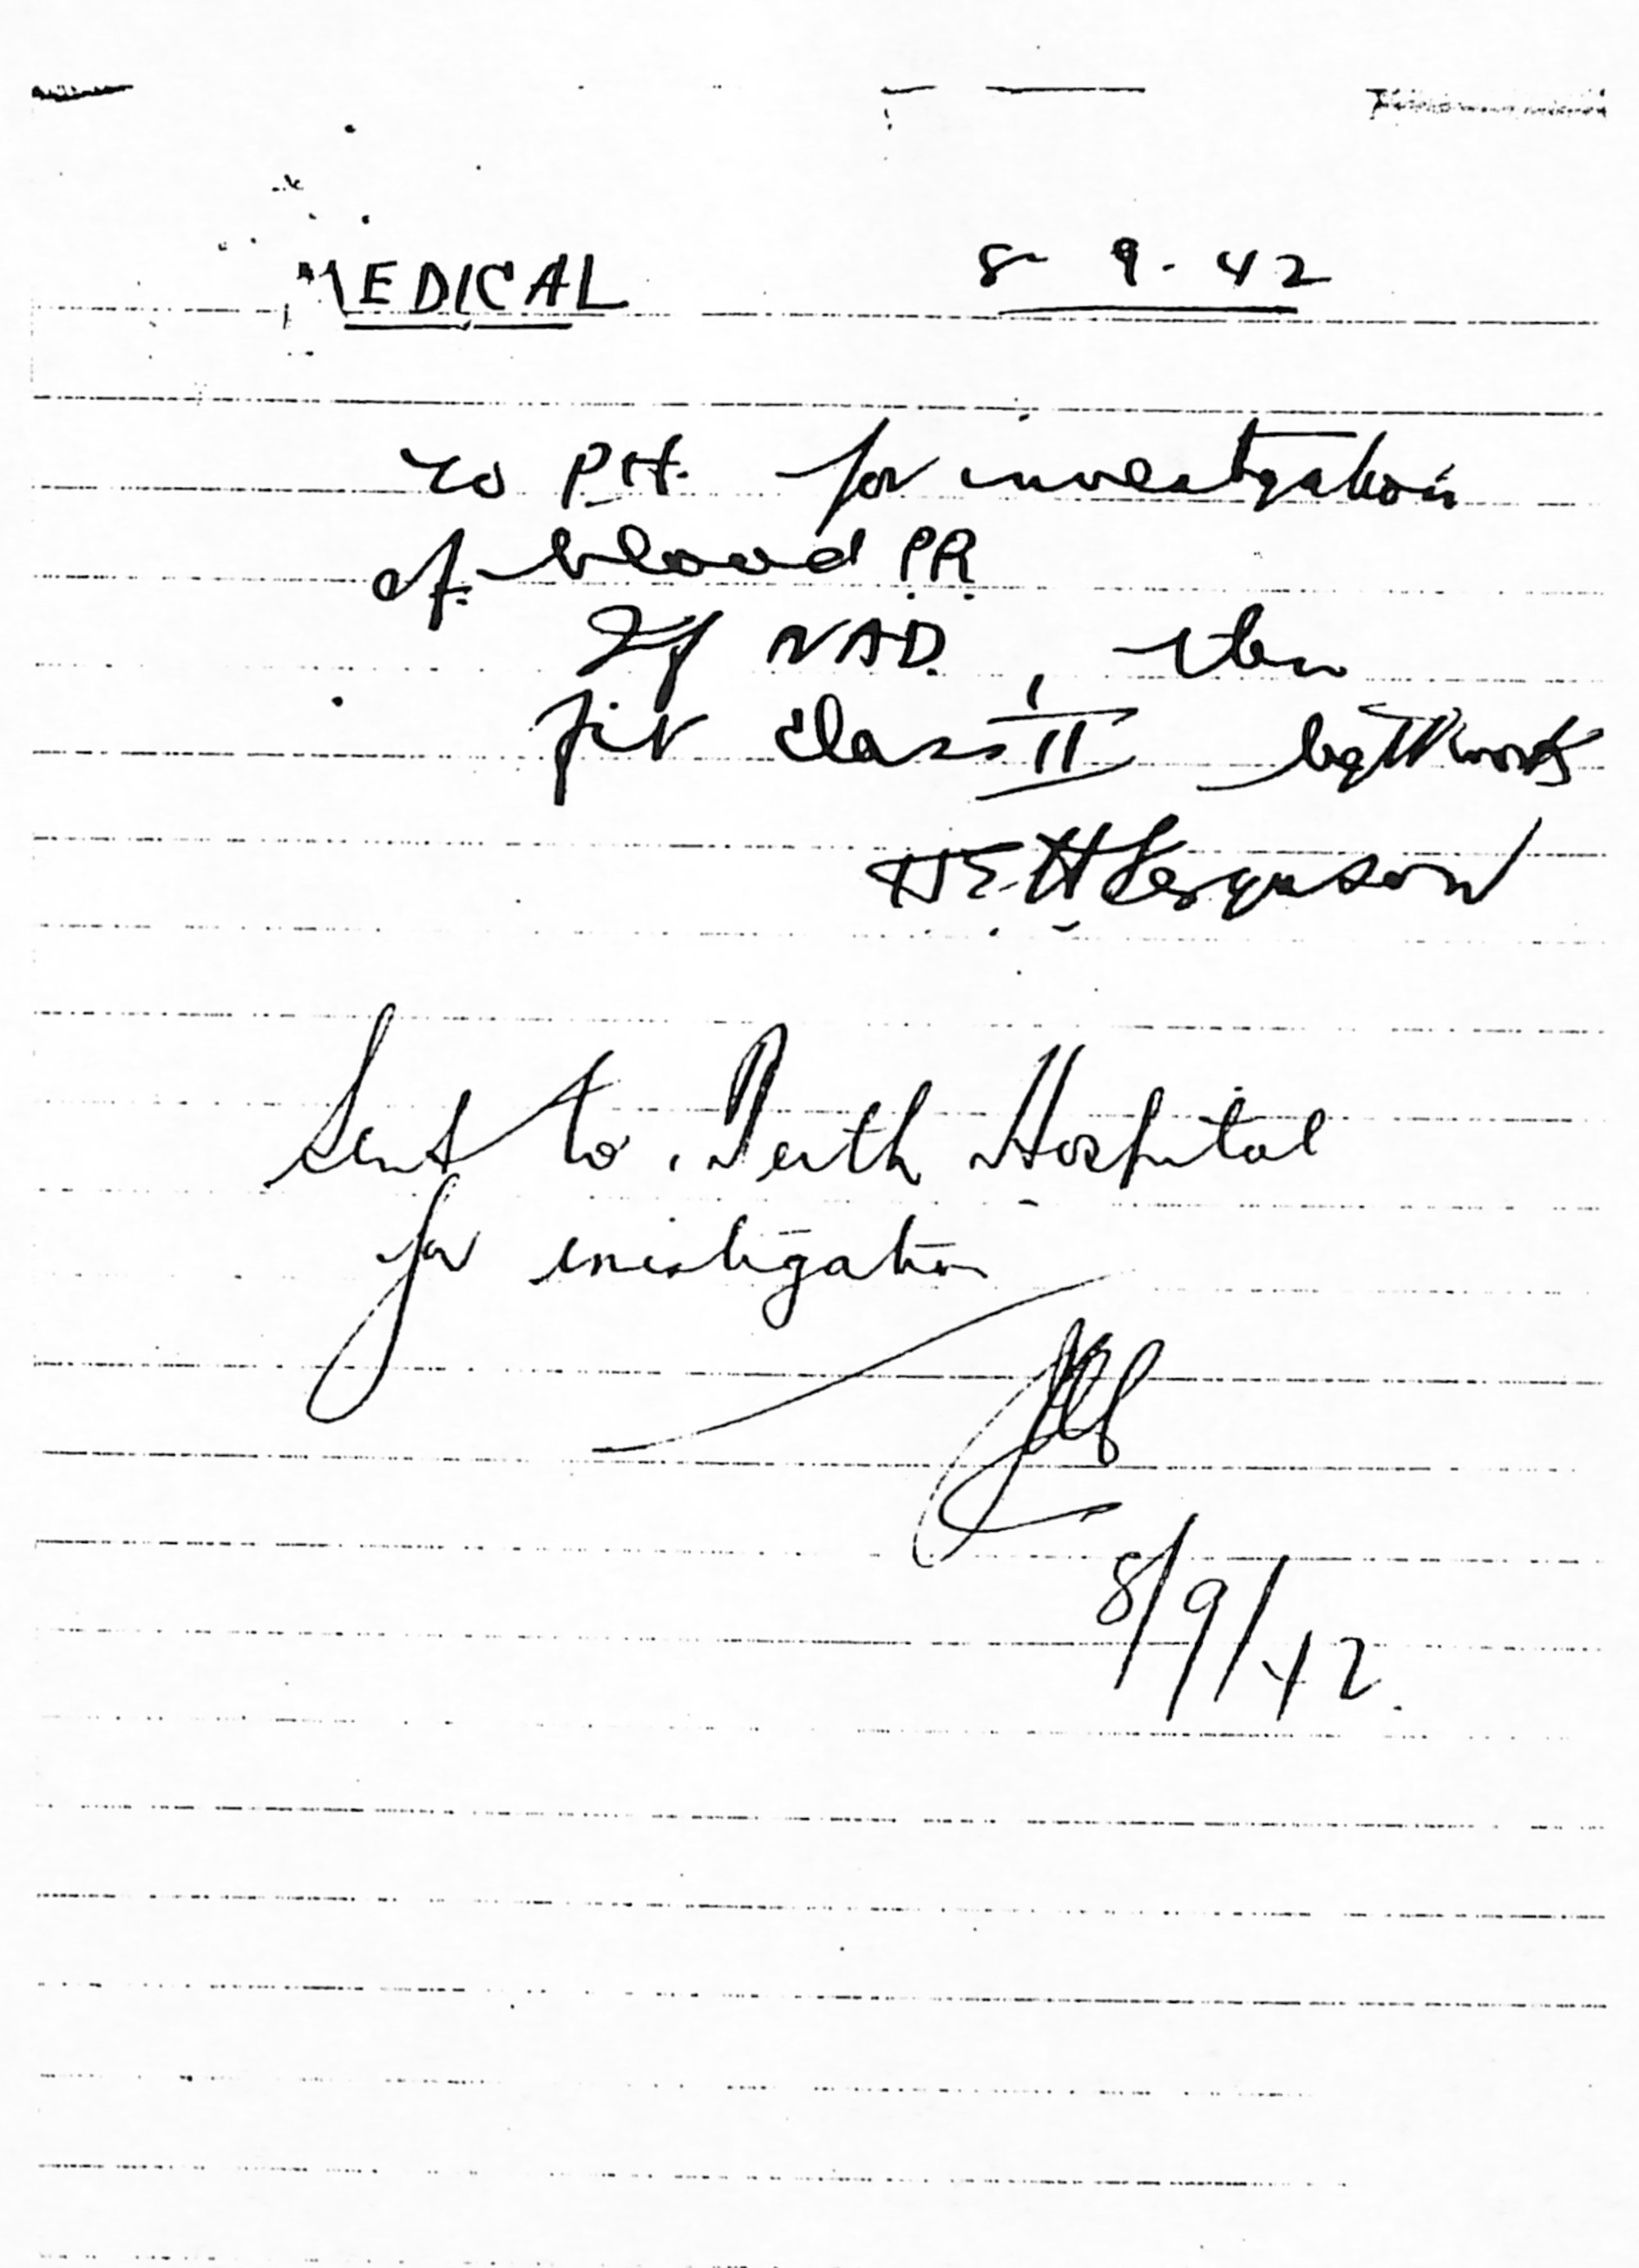 MEDICAL 8-9-42
to P.H. for investigation
of blood P.R.
If NAD, then
fit class II light works
H E H Ferguson
Sent to Perth Hospital
for investigation
8/9/42.